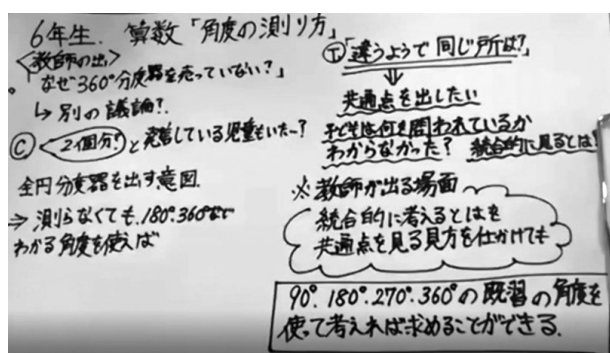 6年生. 算数「角度の測り方」
<教師の出>
「なぜ360°分度器を売っていない？」
↳ 別の議論？.
Ⓒ 2個分！と発言している児童もいた→？
全円分度器を出す意図.
⇒ 測らなくても.180°.360°など
わかる角度を使えば
Ⓣ「違うようで同じ所は？」
⇓
共通点を出したい
子どもは何を問われているか
わからなかった？ 統合的に見るとは？
※教師が出る場面
統合的に考えるとはを
共通点を見る見方を仕かけても
90°.180°.270°.360°の既習の角度を
使って考えれば求めることができる.